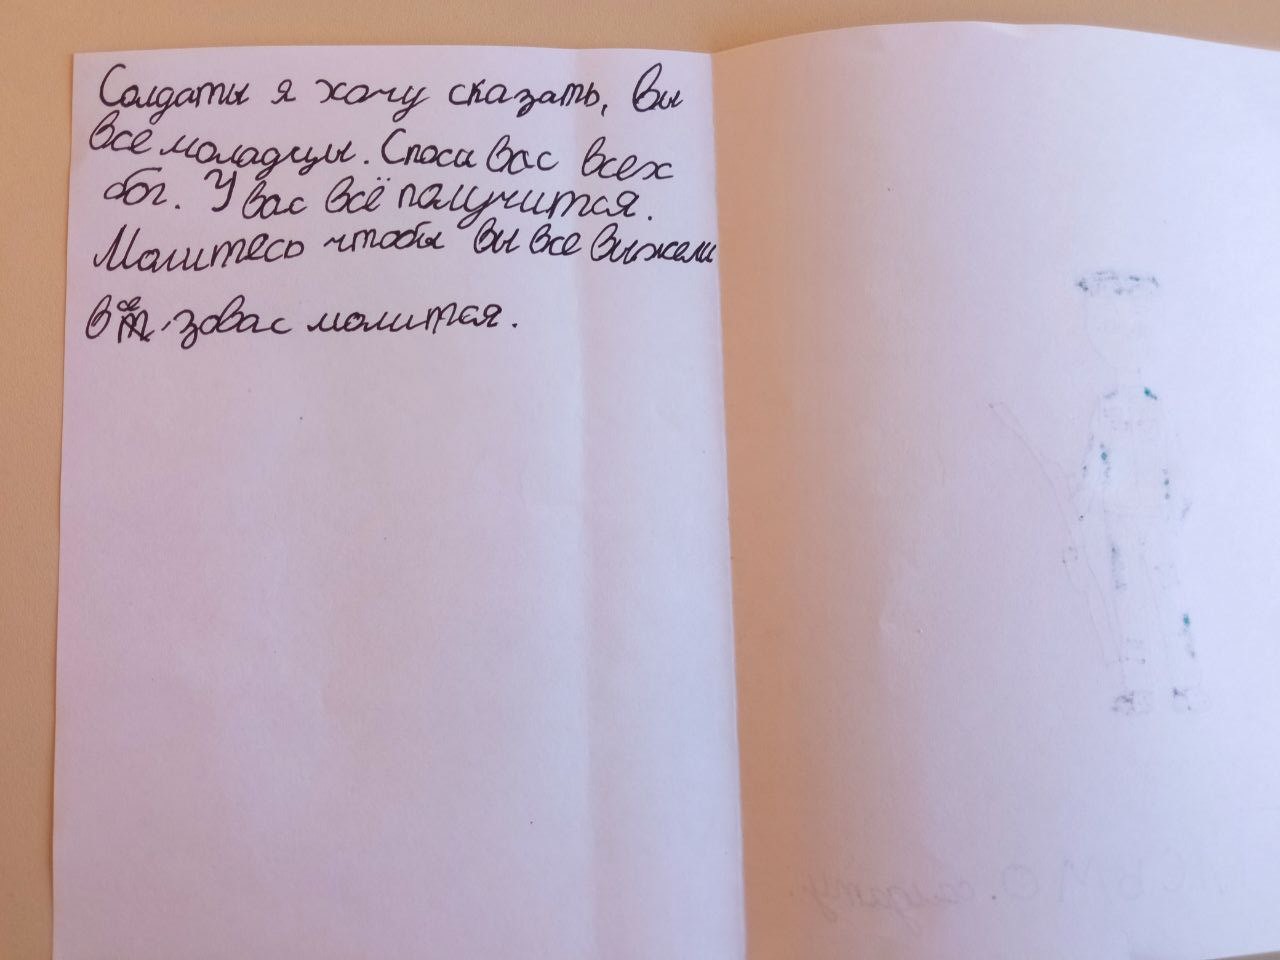 Солдаты я хочу сказать, вы
все моладцы. Спаси вас всех
бог. У вас всё получится.
Молитесь чтобы вы все выжели
все завас молится.